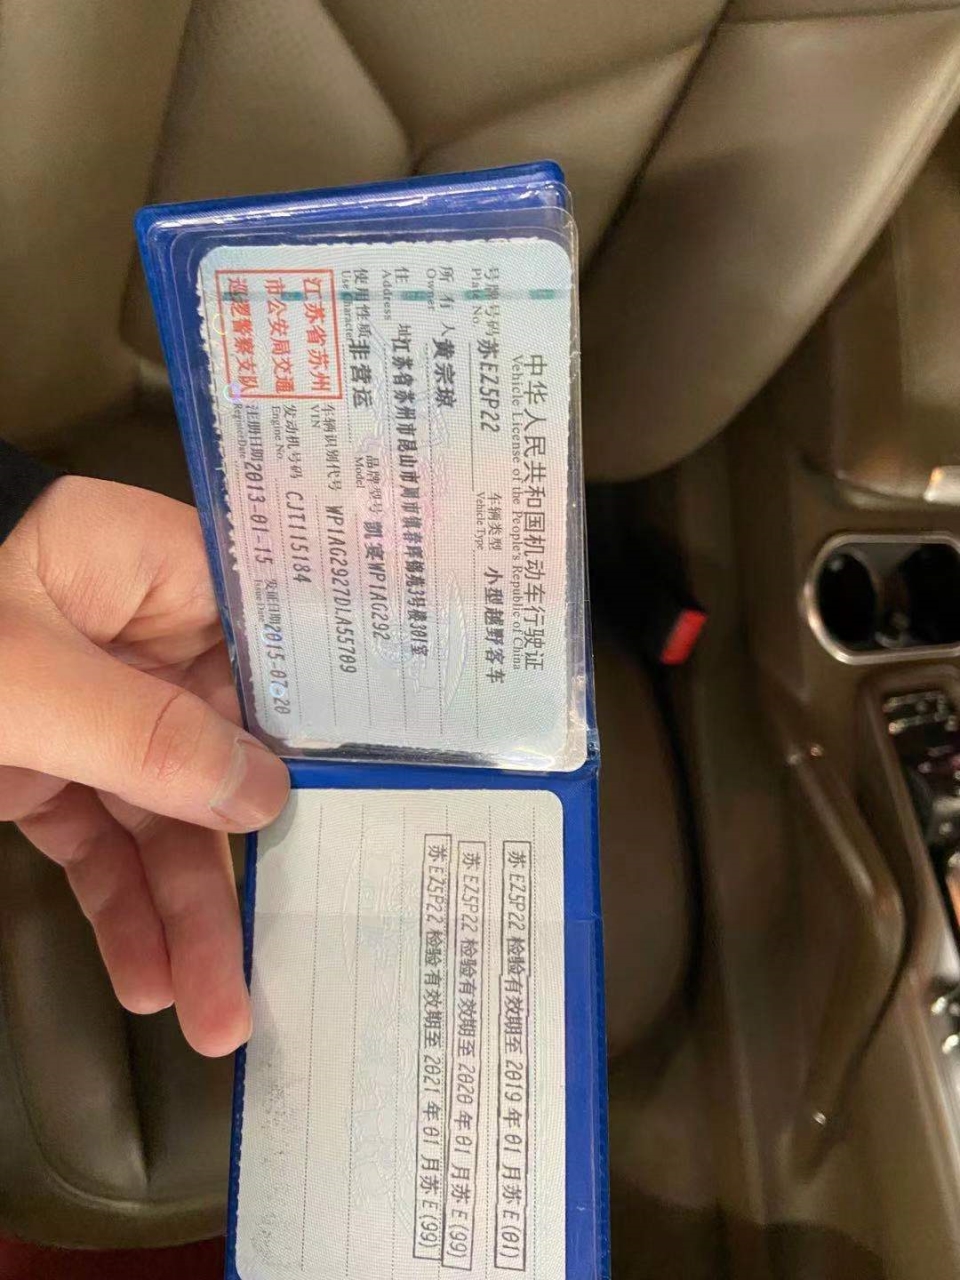 中华人民共和国机动车行驶证
Vehicle License of the People's Republic of China
号牌号码 苏EZ5P22 车辆类型 小型越野客车
Plate No. Vehicle Type
所有人 黄宗琼
Owner
住址 江苏省苏州市昆山市周市镇春晖锦苑3号楼301室
Address
使用性质 非营运 品牌型号 凯宴WP1AG292
Use Character Model
江苏省苏州
市公安局交通
巡逻警察支队
车辆识别代号 WP1AG2927DLA55709
VIN
发动机号码 CJT115184
Engine No.
注册日期 2013-01-15 发证日期 2015-07-20
Register Date Issue Date
苏EZ5P22 检验有效期至 2019年01月苏E(01)
苏EZ5P22 检验有效期至 2020年01月苏E(99)
苏EZ5P22 检验有效期至 2021年01月苏E(99)